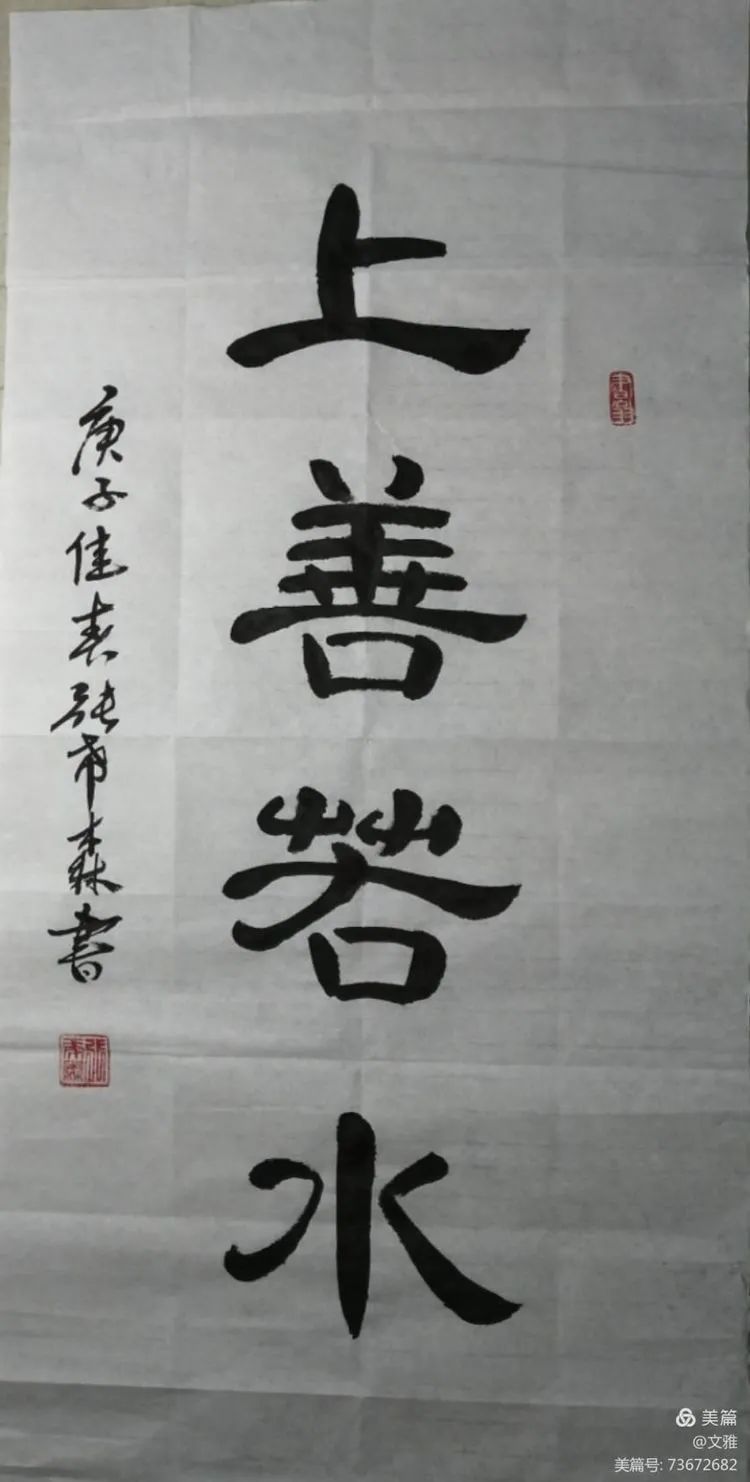 上善若水
庚子佳春张希森书
美篇
@文雅
美篇号: 73672682